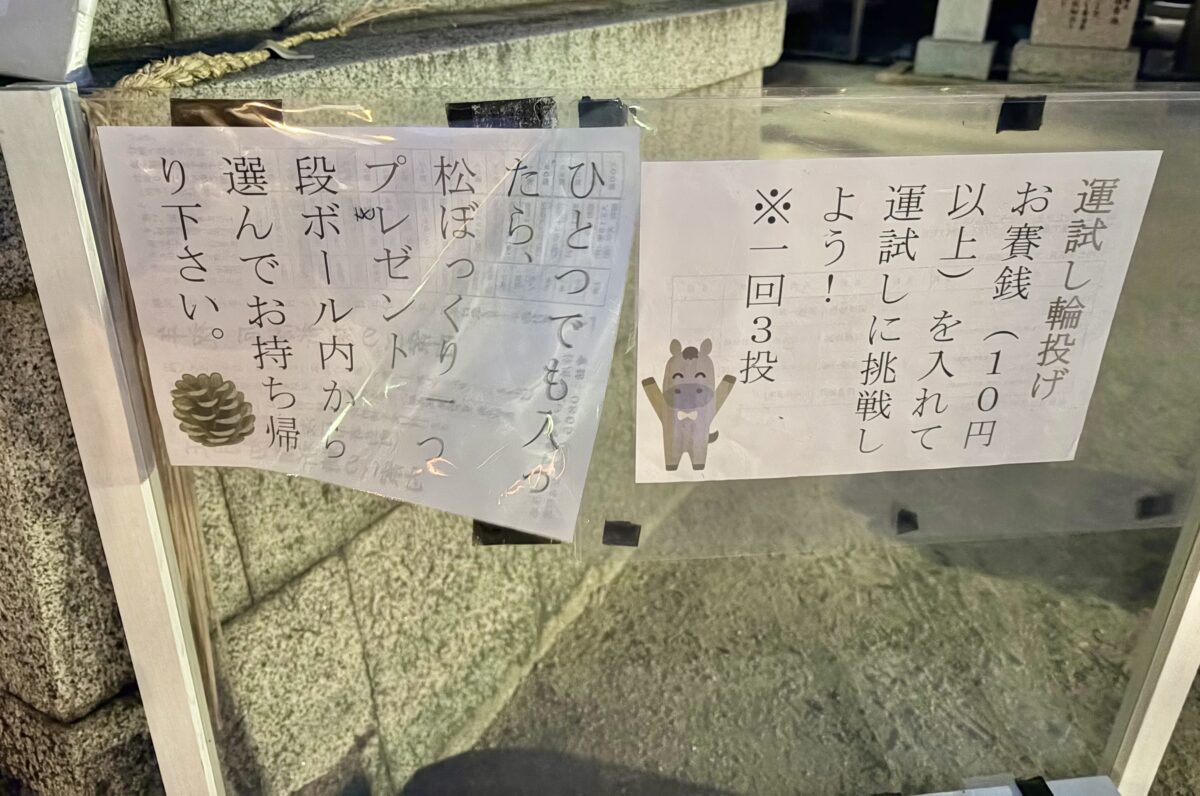 運試し輪投げ
お賽銭（１０円
以上）を入れて
運試しに挑戦し
よう！
※一回３投
ひとつでも入っ
たら、
松ぼっくり一つ
プレゼント
を
段ボール内から
選んでお持ち帰
り下さい。